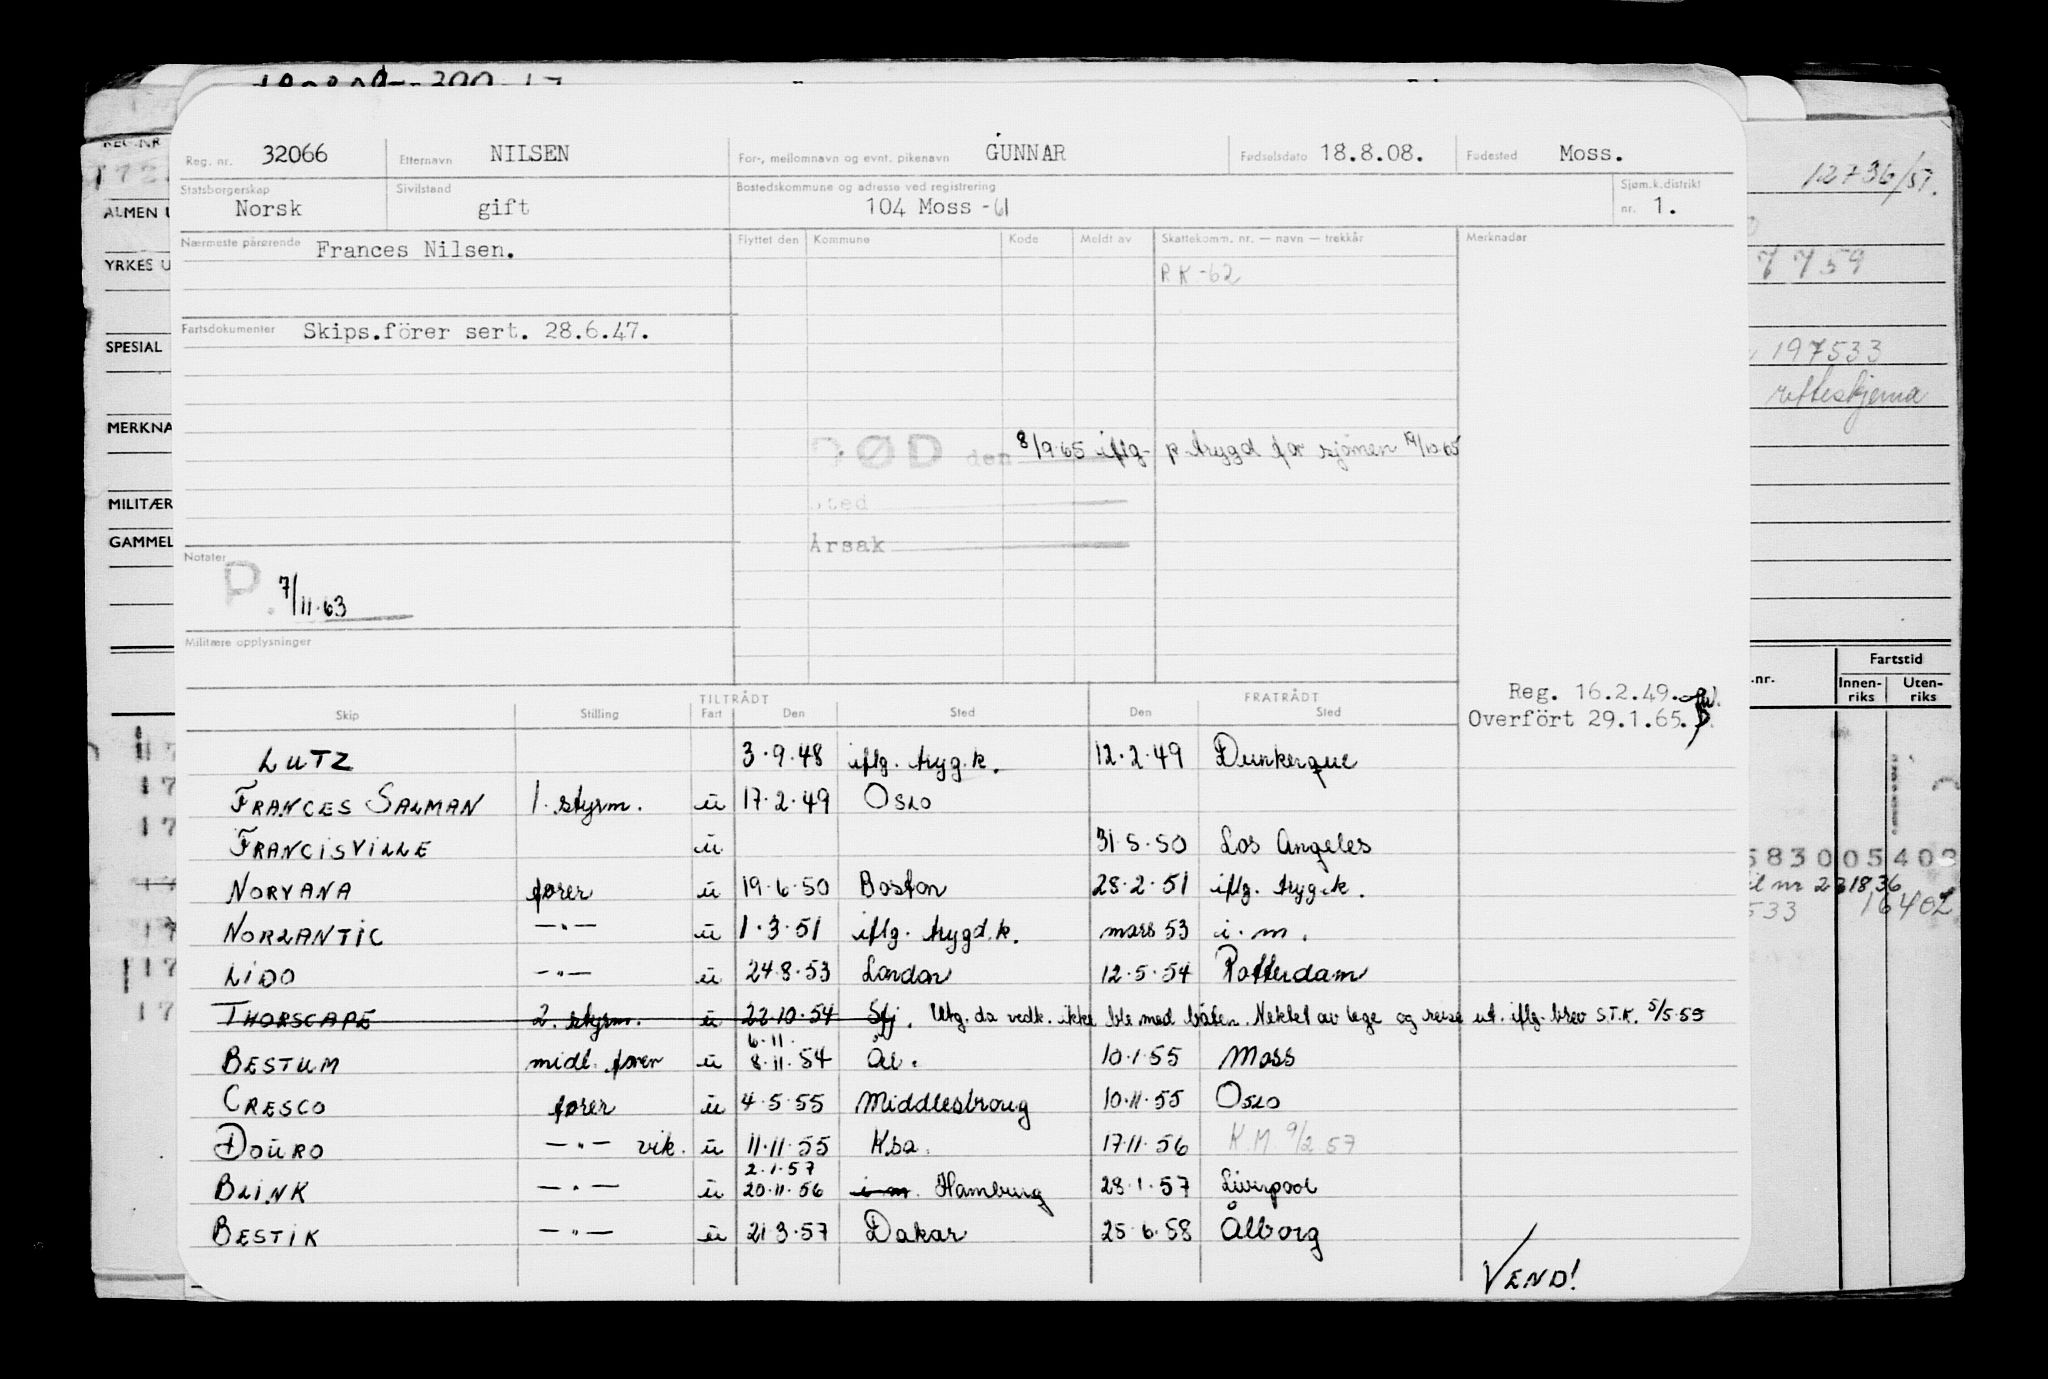 Reg. nr. 32066 Etternavn NILSEN For-, mellomnavn og evnt. pikenavn GUNNAR Fødselsdato 18.8.08. Fødested Moss.
Statsborgerskap Norsk Sivilstand gift Bostedskommune og adresse ved registrering 104 Moss -61 Sjøm.k.distrikt nr. 1.
Nærmeste pårørende Frances Nilsen. Flyttet den Kommune Kode Meldt av Skattekomm. nr. — navn — trekkår Merknader
R K -62
Fartsdokumenter Skips.förer sert. 28.6.47.
DØD den 8/9.65 iflg. p.trygd for sjømen 19/10 65
Sted
Årsak
Notater
P. 7/11.63
Militære opplysninger
Reg. 16.2.49.
Overfört 29.1.65.
TILTRÅDT FRATRÅDT
Skip Stilling Fart Den Sted Den Sted
LUTZ 3.9.48 iflg. tryg.k. 12.2.49 Dunkerque
FRANCES SALMAN 1. styrm. u 17.2.49 OSLO
FRANCISVILLE u 31.5.50 Los Angeles
NORVANA fører u 19.6.50 Boston 28.2.51 iflg. tryg.k.
NORLANTIC —"— u 1.3.51 iflg. trygd.k. mars 53 i.m.
LIDO —"— u 24.8.53 London 12.5.54 Rotterdam
THORSCAPE 2. styrm. u 22.10.54 Sfj. Utg. da vedk. ikke ble med båten. Nektet av lege og reise ut. iflg. brev S.T.K. 5/5.55
BESTUM midl. fører u 6.11. 8.11.54 Ål. 10.1.55 Moss
CRESCO fører u 4.5.55 Middlesbroug 10.11.55 OSLO
DOURO —"— vik. u 11.11.55 Ksa. 17.11.56 K.M. 9/2 57
BLINK —"— u 2.1.57 20.11.56 i m. Hamburg 28.1.57 Liverpool
BESTIK —"— u 21.3.57 Dakar 25.6.58 Ålborg
VEND!
REG.NR
ALMEN U
YRKES U
SPESIAL
MERKNA
MILITÆR
GAMMEL
12736/57.
7759
197533
retteskjema
.nr. Fartstid
Innen-riks Uten-riks
583005402
533 16402